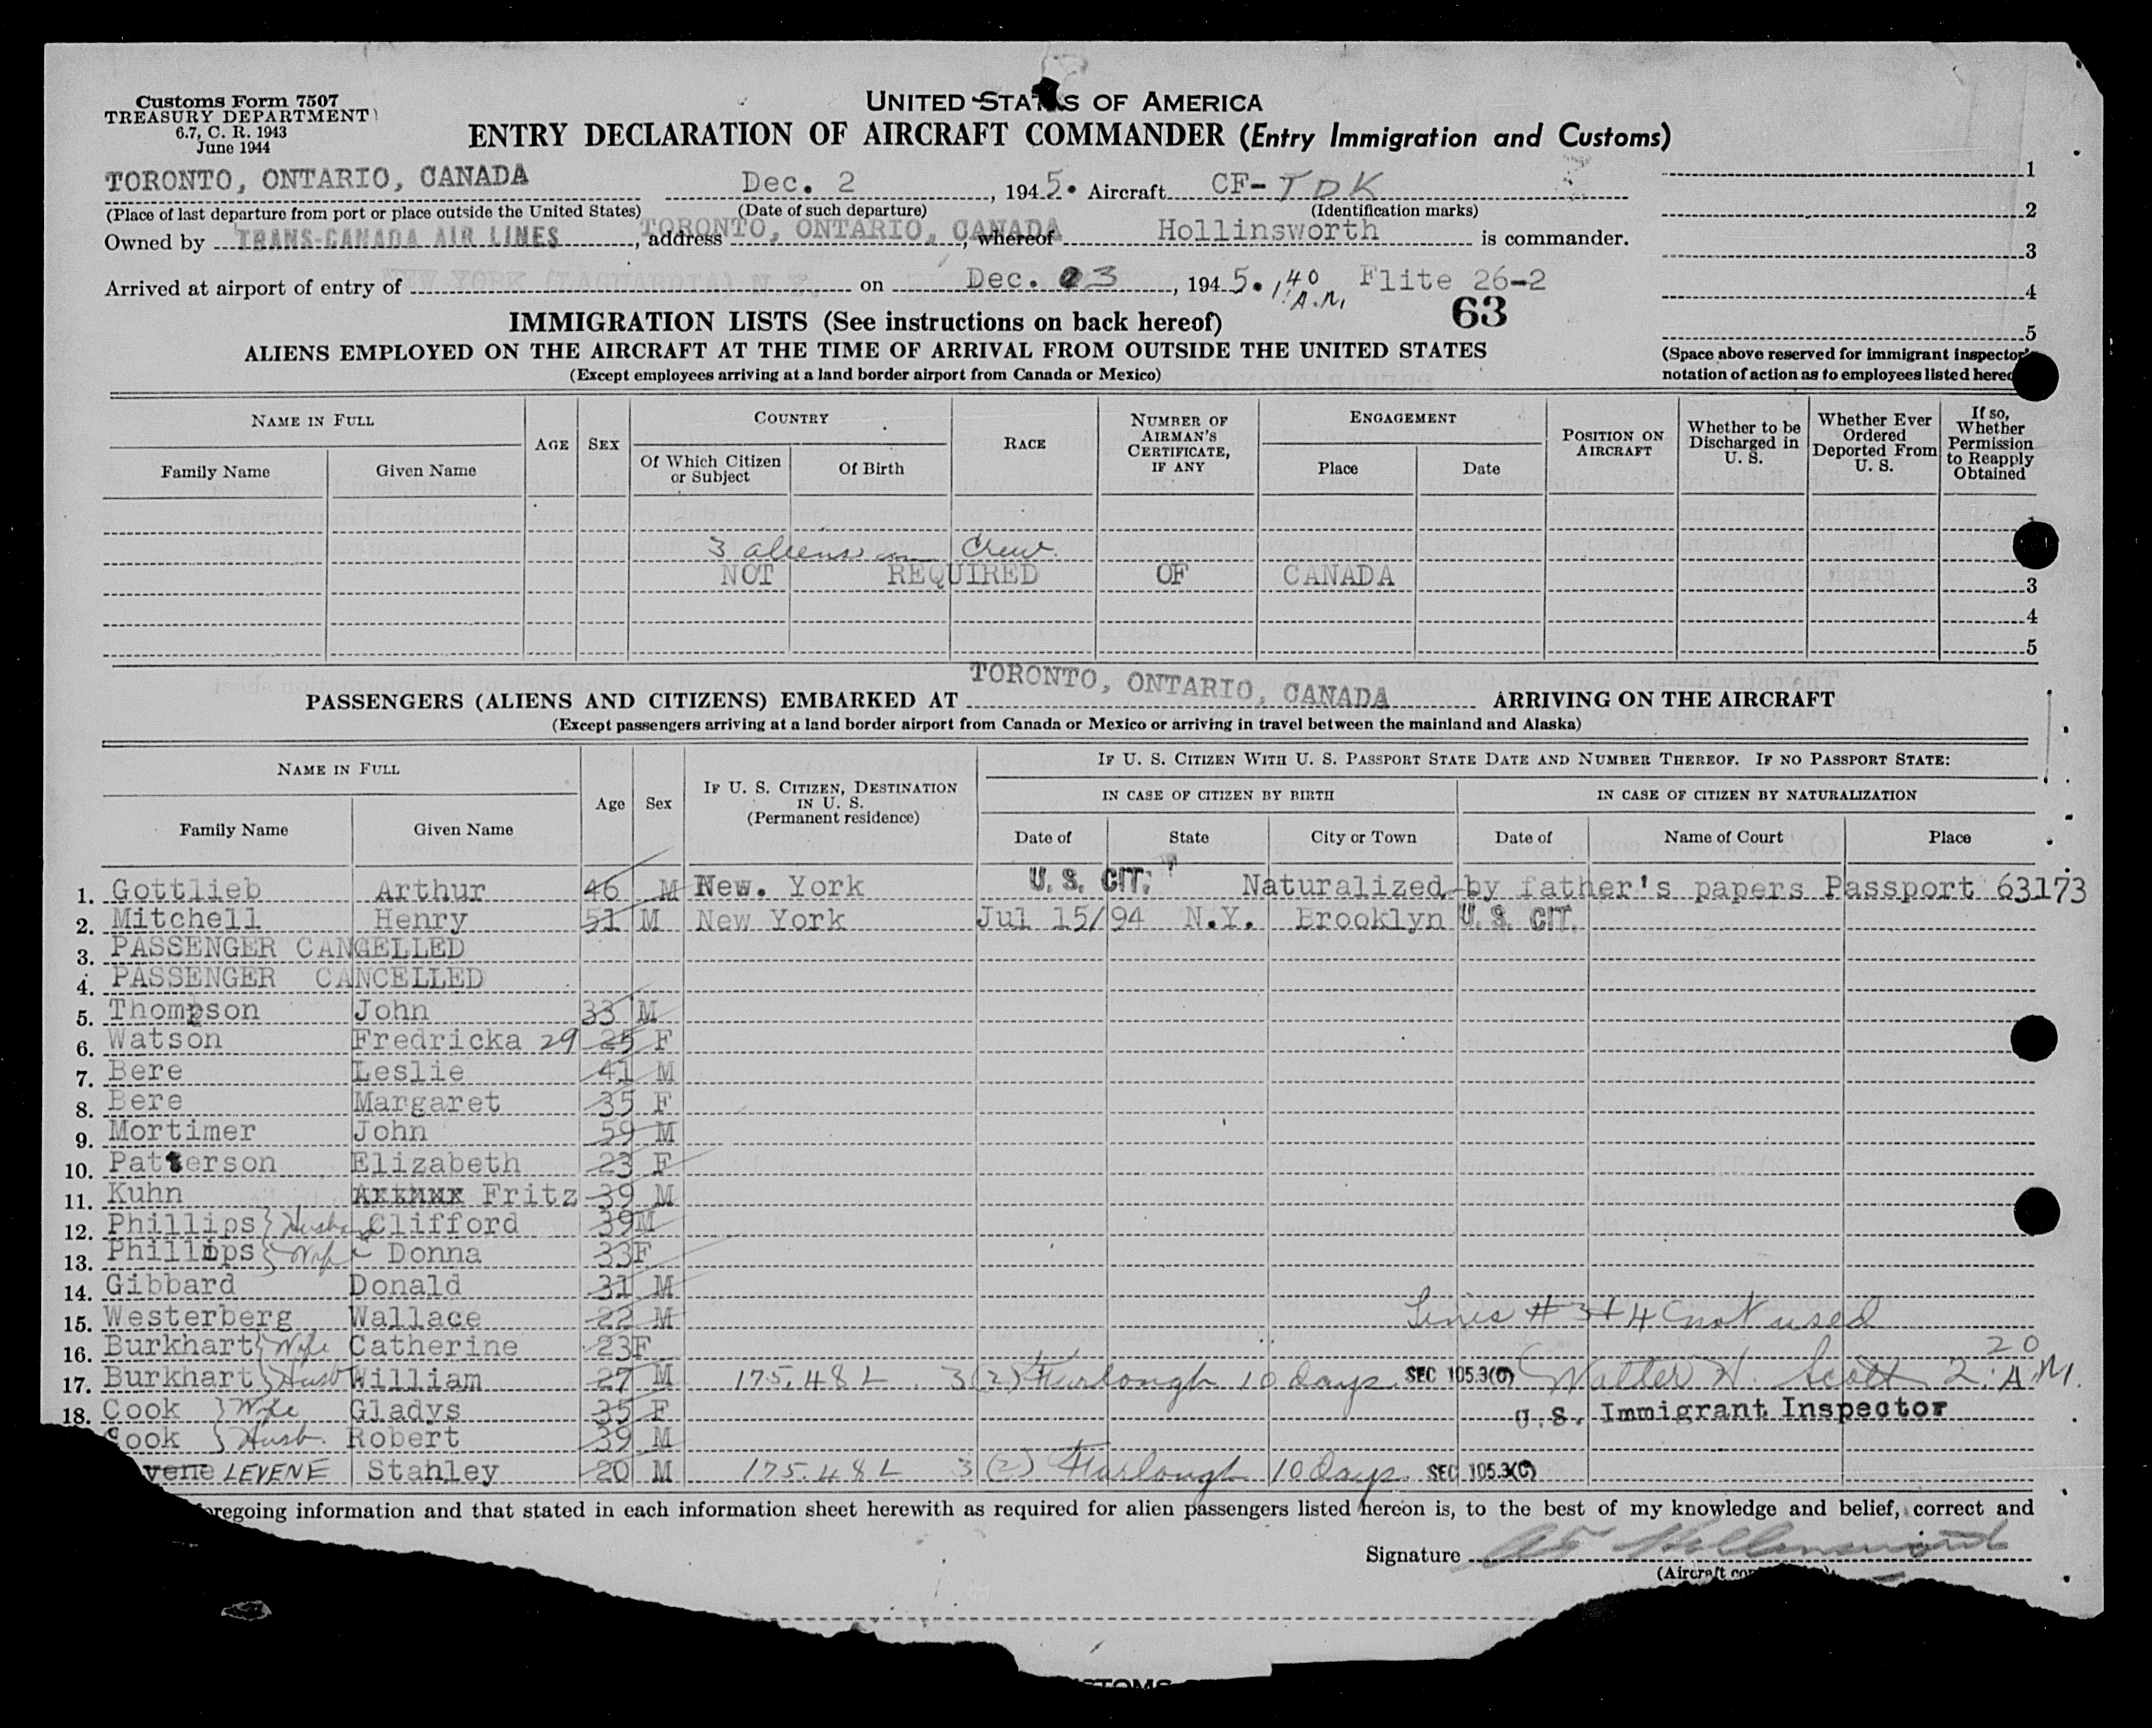 Customs Form 7507
TREASURY DEPARTMENT
6.7, C. R. 1943
June 1944
UNITED STATES OF AMERICA
ENTRY DECLARATION OF AIRCRAFT COMMANDER (Entry Immigration and Customs)
TORONTO, ONTARIO, CANADA Dec. 2, 1945. Aircraft CF-TDK
(Place of last departure from port or place outside the United States) (Date of such departure) (Identification marks)
Owned by TRANS-CANADA AIR LINES, address TORONTO, ONTARIO, CANADA, whereof Hollinsworth is commander.
Arrived at airport of entry of on Dec. 3, 1945. 1:40 A.M. Flite 26-2
63
1
2
3
4
5
(Space above reserved for immigrant inspector's
notation of action as to employees listed hereo
IMMIGRATION LISTS (See instructions on back hereof)
ALIENS EMPLOYED ON THE AIRCRAFT AT THE TIME OF ARRIVAL FROM OUTSIDE THE UNITED STATES
(Except employees arriving at a land border airport from Canada or Mexico)
NAME IN FULL AGE SEX COUNTRY RACE NUMBER OF AIRMAN'S CERTIFICATE, IF ANY ENGAGEMENT POSITION ON AIRCRAFT Whether to be Discharged in U. S. Whether Ever Ordered Deported From U. S. If so, Whether Permission to Reapply Obtained
Family Name Given Name Of Which Citizen or Subject Of Birth Place Date
3 aliens in Crew.
NOT REQUIRED OF CANADA 3
4
5
PASSENGERS (ALIENS AND CITIZENS) EMBARKED AT TORONTO, ONTARIO, CANADA ARRIVING ON THE AIRCRAFT
(Except passengers arriving at a land border airport from Canada or Mexico or arriving in travel between the mainland and Alaska)
NAME IN FULL Age Sex IF U. S. CITIZEN, DESTINATION IN U. S. (Permanent residence) IF U. S. CITIZEN WITH U. S. PASSPORT STATE DATE AND NUMBER THEREOF. IF NO PASSPORT STATE:
IN CASE OF CITIZEN BY BIRTH IN CASE OF CITIZEN BY NATURALIZATION
Family Name Given Name Date of State City or Town Date of Name of Court Place
1. Gottlieb Arthur 46 M New. York U. S. CIT. Naturalized by father's papers Passport 63173
2. Mitchell Henry 51 M New York Jul 15/94 N.Y. Brooklyn U. S. CIT.
3. PASSENGER CANCELLED
4. PASSENGER CANCELLED
5. Thompson John 33 M
6. Watson Fredricka 29 25 F
7. Bere Leslie 41 M
8. Bere Margaret 35 F
9. Mortimer John 59 M
10. Patterson Elizabeth 23 F
11. Kuhn Fritz 39 M
12. Phillips } Husband Clifford 39 M
13. Phillips } Wife Donna 33 F
14. Gibbard Donald 31 M
15. Westerberg Wallace 22 M Lines # 3 + 4 not used
16. Burkhart } Wife Catherine 23 F
17. Burkhart } Husb William 27 M 175.48 L 3(2) Furlough 10 days. SEC 105.3(C) Walter H. Scott 2:20 A.M.
18. Cook } Wife Gladys 35 F U. S. Immigrant Inspector
Cook } Husb. Robert 39 M
vene LEVENE Stanley 20 M 175.48 L 3(2) Furlough 10 Days. SEC 105.3(C)
regoing information and that stated in each information sheet herewith as required for alien passengers listed hereon is, to the best of my knowledge and belief, correct and
Signature
(Aircraft co